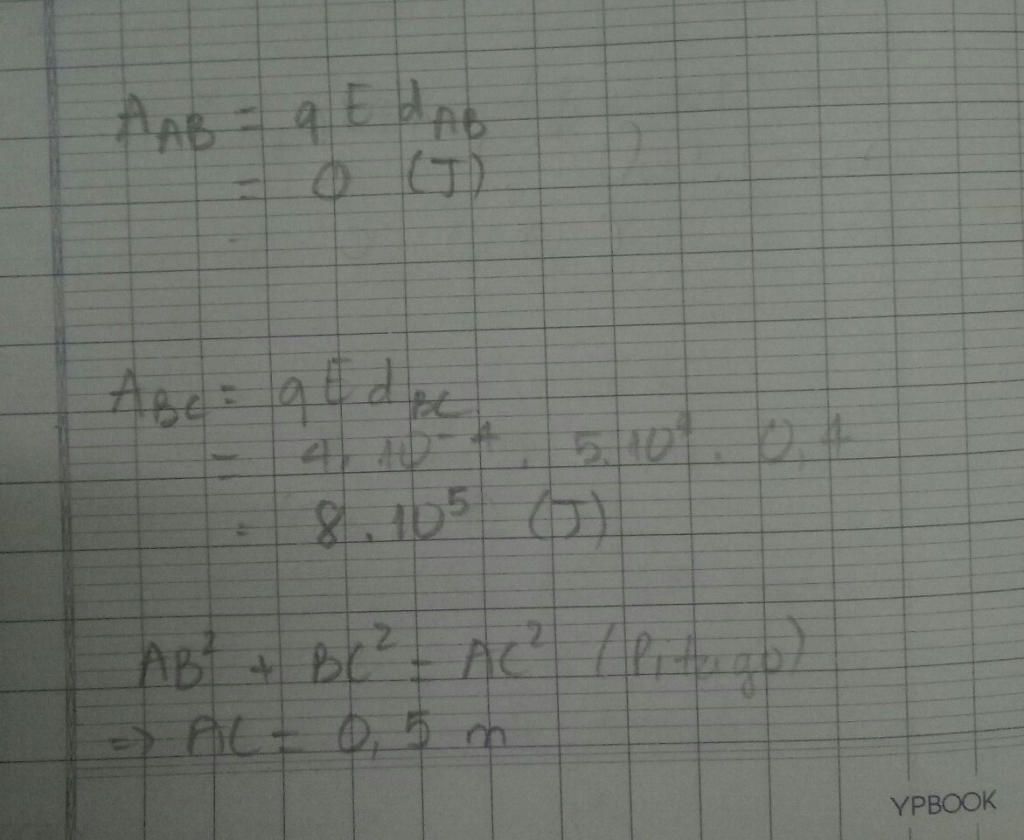 A_AB = q E d_AB
= 0 (J)
A_BC = q E d_BC
= 4. 10^-4 . 5.10^4 . 0,4
= 8 . 10^5 (J)
AB² + BC² = AC² (Pitago)
=> AC = 0,5 m
YPBOOK